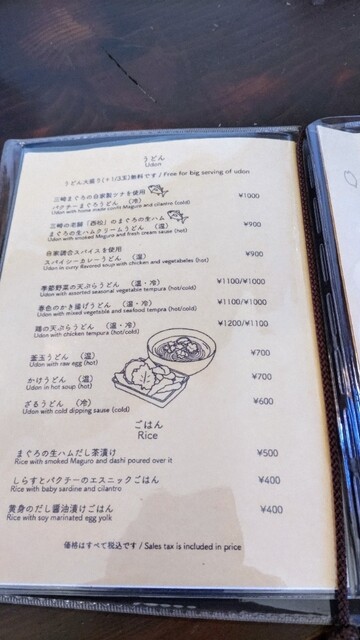 うどん
Udon
うどん大盛り(+1/3玉)無料です / Free for big serving of udon
三崎まぐろの自家製ツナを使用
パクチーまぐろうどん (冷) ¥1000
Udon with home made confit Maguro and cilantro (cold)
三崎の老舗「西松」のまぐろの生ハム
まぐろの生ハムクリームうどん (温) ¥900
Udon with smoked Maguro and fresh cream sauce (hot)
自家調合スパイスを使用
スパイシーカレーうどん (温) ¥900
Udon in curry flavored soup with chicken and vegetabeles (hot)
季節野菜の天ぷらうどん (温・冷) ¥1100/¥1000
Udon with assorted seasonal vegetable tempura (hot/cold)
春色のかき揚げうどん (温・冷) ¥1100/¥1000
Udon with mixed vegetable and seafood tempra (hot/cold)
鶏の天ぷらうどん (温・冷) ¥1200/¥1100
Udon with chicken tempura (hot/cold)
釜玉うどん (温) ¥700
Udon with raw egg (hot)
かけうどん (温) ¥700
Udon in hot soup (hot)
ざるうどん (冷) ¥600
Udon with cold dipping sauce (cold)
ごはん
Rice
まぐろの生ハムだし茶漬け ¥500
Rice with smoked Maguro and dashi poured over it
しらすとパクチーのエスニックごはん ¥400
Rice with baby sardine and cilantro
黄身のだし醤油漬けごはん ¥400
Rice with soy marinated egg yolk
価格はすべて税込です / Sales tax is included in price